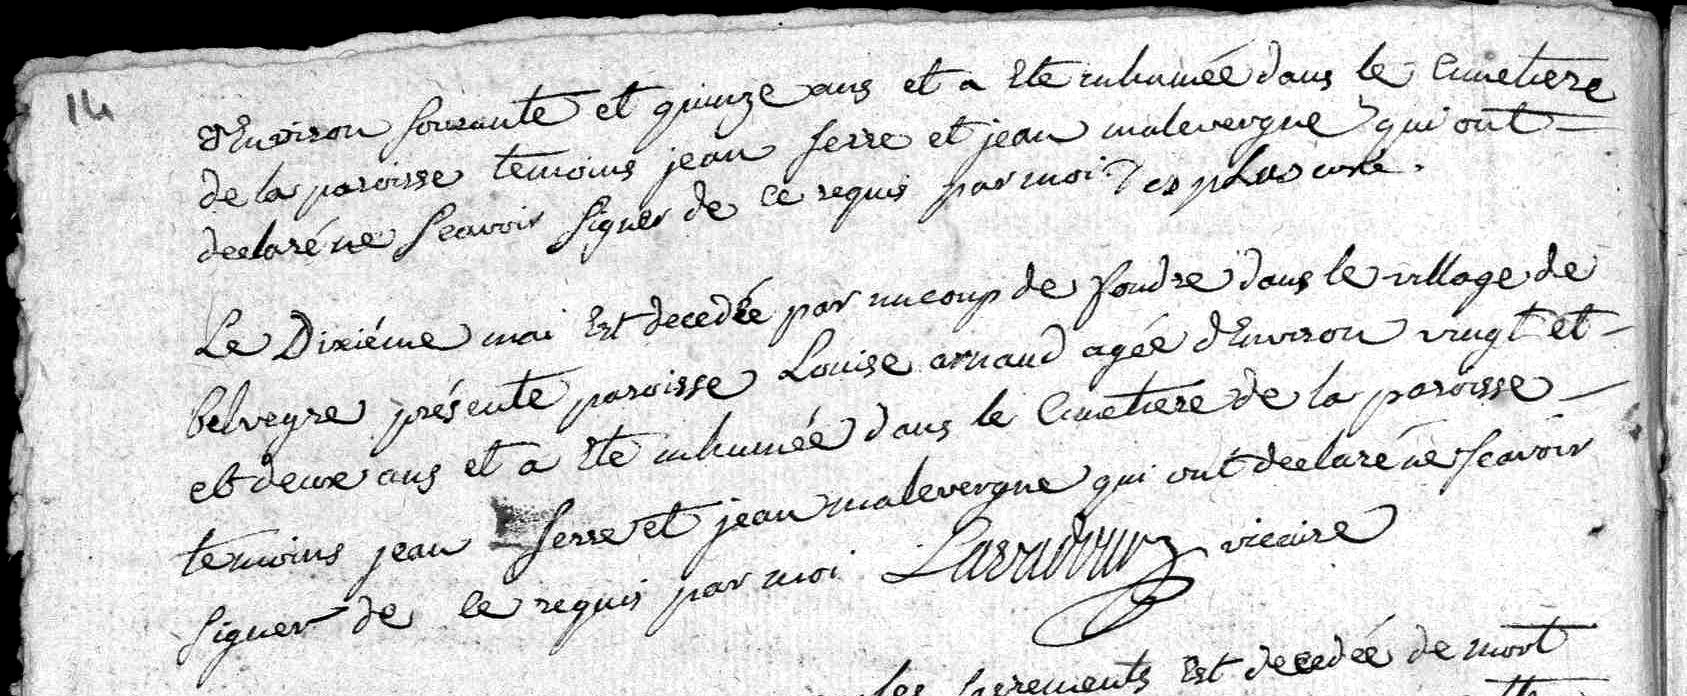 14
d'Environ soixante et quinze ans et a Ete inhumée dans le Cimetiere
de la paroisse temoins jean serre et jean malevergne qui ont
declaré ne scavoir signer de ce requis par moi curé.
Le Dixiéme mai Est decedée par un coup de foudre dans le village de
belveyre présente paroisse Louise arnaud agée d'Environ vingt et
et deux ans et a Ete inhumée dans le Cimetiere de la paroisse
temoins jean serre et jean malevergne qui ont declaré ne scavoir
signer de ce requis par moi vicaire
les sacrements Est decedée de mort